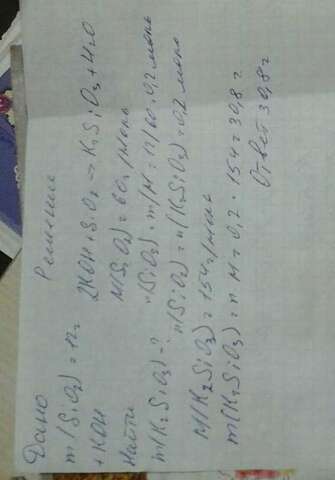 Дано
Решение
m(SiO2)=12г
+KOH
Найти
m(K2SiO3)-?
2KOH+SiO2→K2SiO3+H2O
M(SiO2)=60г/моль
n(SiO2)=m/M=12/60=0,2моль
n(SiO2)=n(K2SiO3)=0,2моль
M(K2SiO3)=154г/моль
m(K2SiO3)=n M=0,2·154=30,8г
Ответ 30,8г